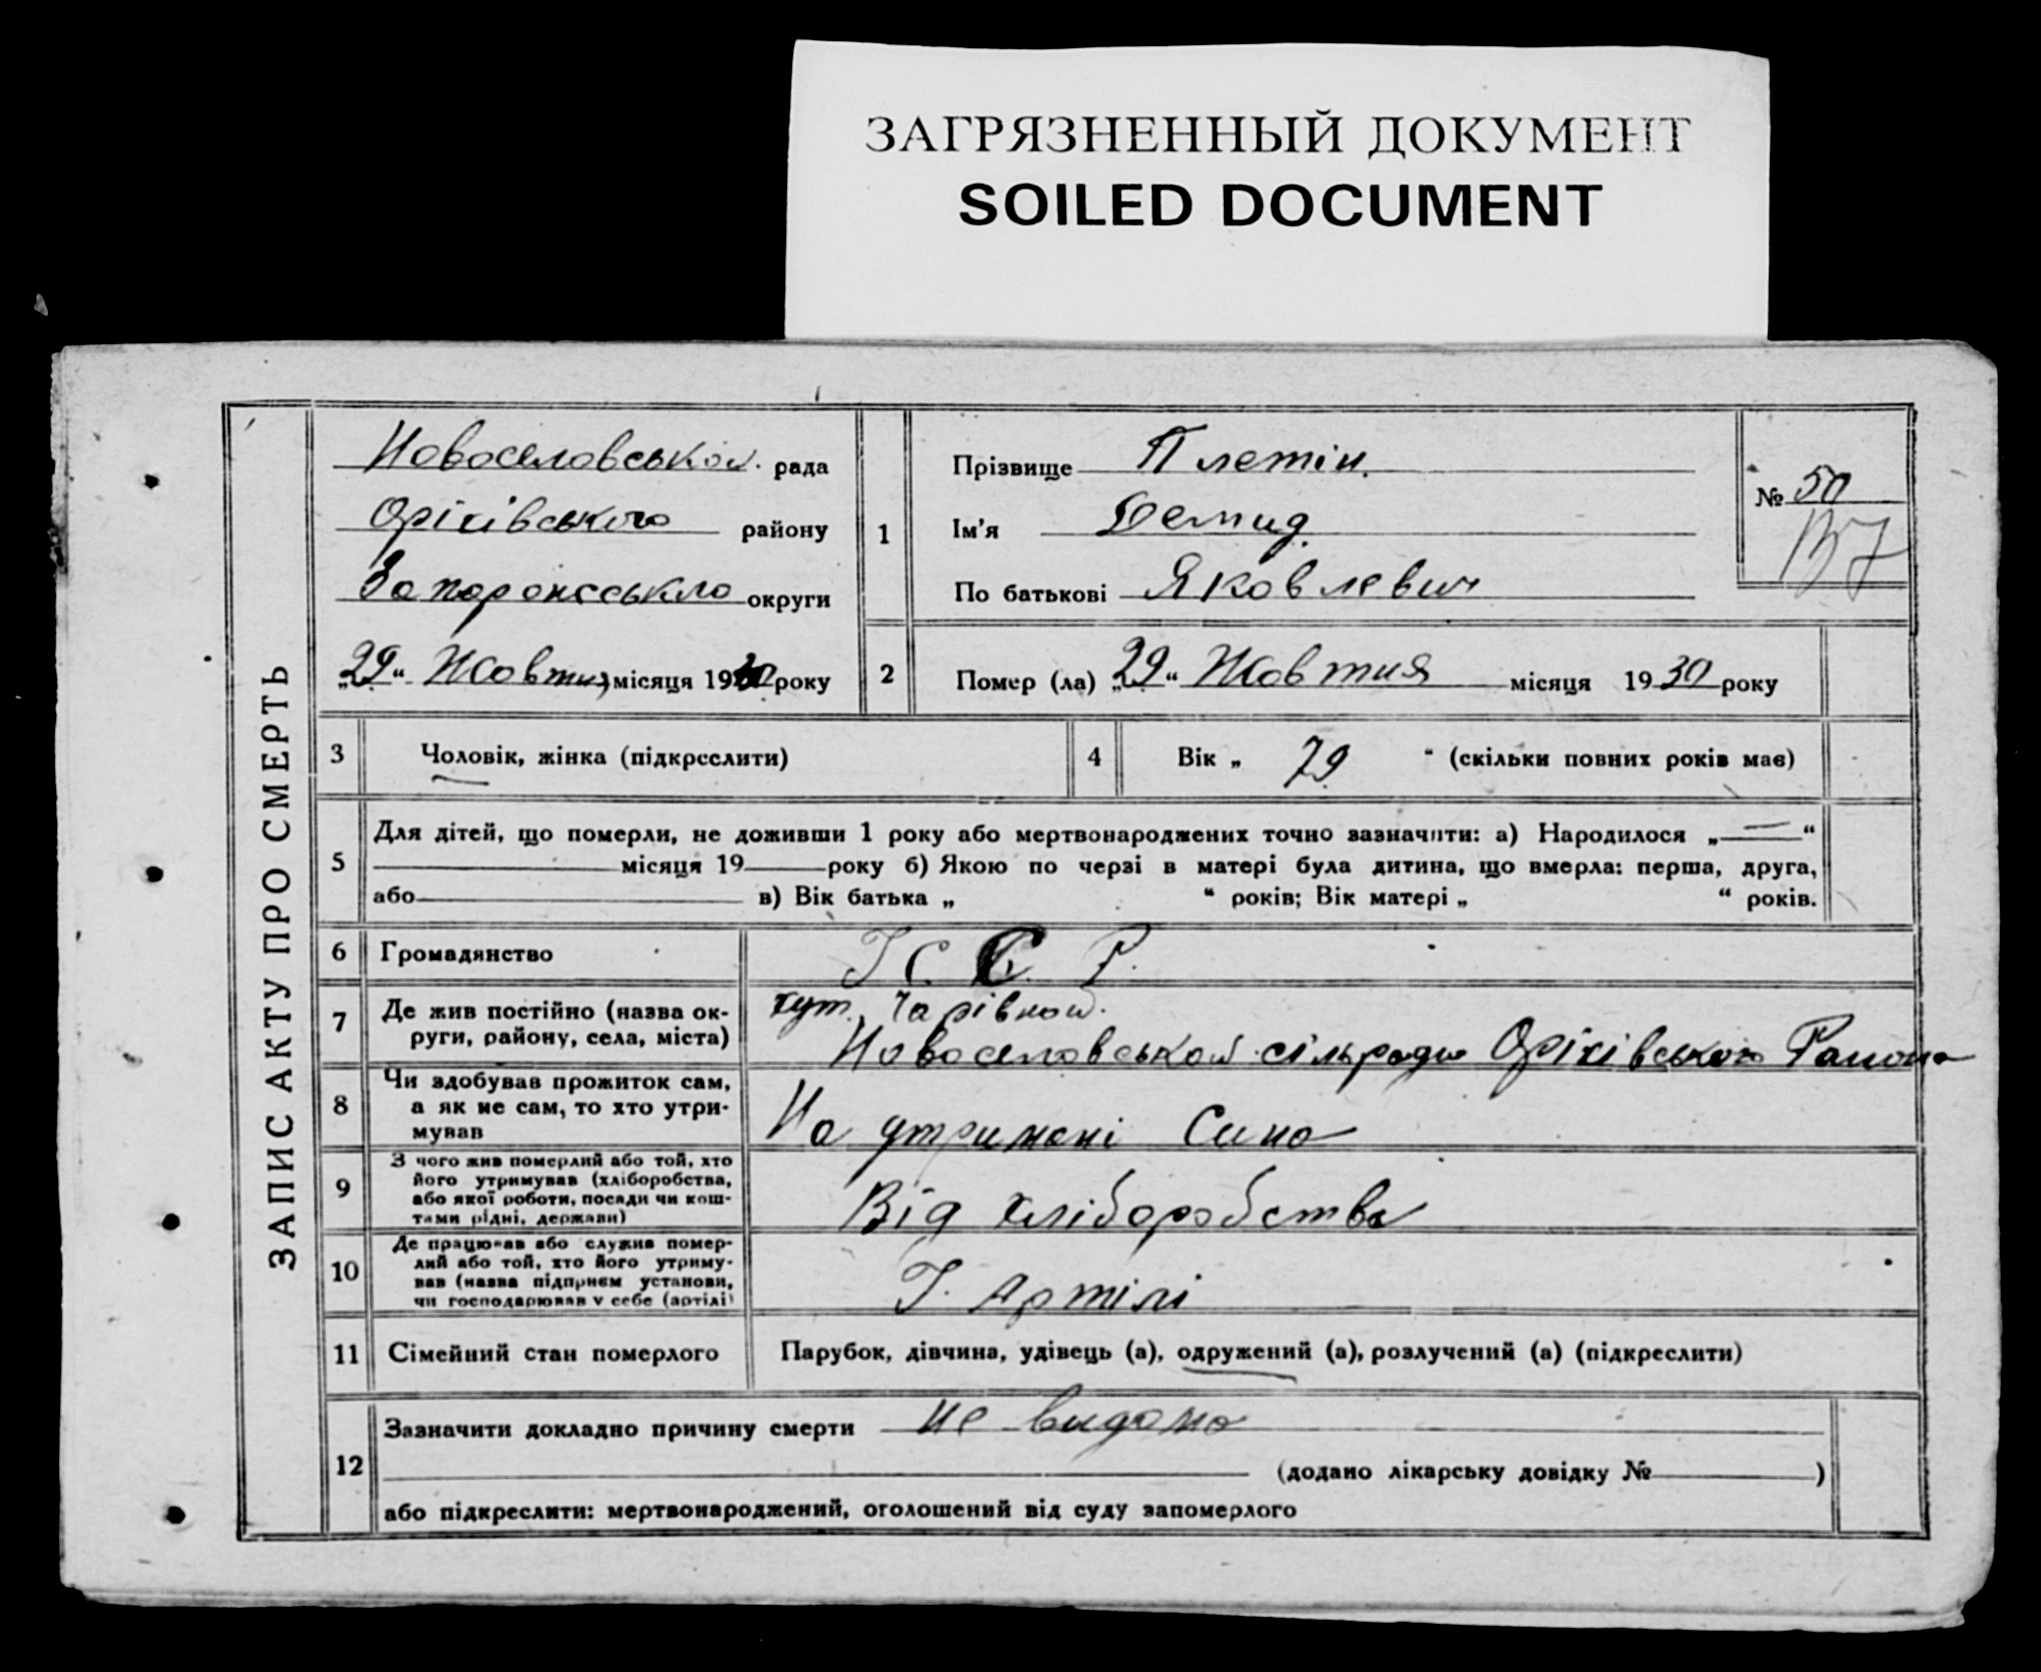 ЗАГРЯЗНЕННЫЙ ДОКУМЕНТ
SOILED DOCUMENT
ЗАПИС АКТУ ПРО СМЕРТЬ
Новоселовської рада
Оріхівського району
Запоріжського округи
„29“ Жовтня місяця 1930 року
1
Прізвище Плетін
Ім’я Демид
По батькові Яковлевич
№ 50
2
Помер (ла) „29“ Жовтня місяця 1930 року
3 Чоловік, жінка (підкреслити)
4 Вік „ 79 “ (скільки повних років має)
5
Для дітей, що померли, не доживши 1 року або мертвонароджених точно зазначити: а) Народилося „—“
місяця 19 року б) Якою по черзі в матері була дитина, що вмерла: перша, друга,
або в) Вік батька „ “ років; Вік матері „ “ років.
6 Громадянство С. С. Р.
7
Де жив постійно (назва ок-
руги, району, села, міста)
хут. Чарівной
Новоселовської сільради Оріхівського Району
8
Чи здобував прожиток сам,
а як не сам, то хто утри-
мував
На утримані Сина
9
З чого жив померлий або той, хто
його утримував (хліборобства,
або якої роботи, посади чи кош-
тами рідні, держави)
Від хліборобства
10
Де працював або служив помер-
лий або той, хто його утриму-
вав (назва підприєм установи,
чи господарював у себе (артілі)
У. Артілі
11 Сімейний стан померлого
Парубок, дівчина, удівець (а), одружений (а), розлучений (а) (підкреслити)
12
Зазначити докладно причину смерти не видомо
(додано лікарську довідку № )
або підкреслити: мертвонароджений, оголошений від суду запомерлого